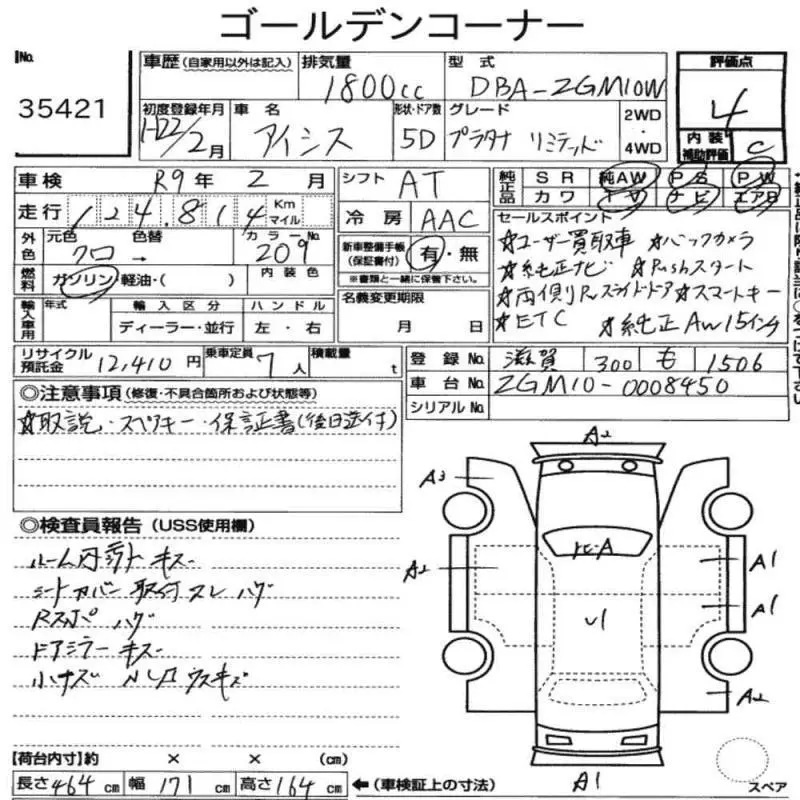 ゴールデンコーナー
No.
35421
車歴 (自家用以外は記入)
排気量
1800cc
型式
DBA-ZGM10W
評価点
4
初度登録年月
H22/2月
車名
アイシス
形状・ドア数
5D
グレード
プラタナ リミテッド
2WD
・
4WD
内装
補助評価
C
車検 R9年 2月
シフト AT
純正品
SR 純AW PS PW
カワ TV ナビ エアB
走行 124,814 Km マイル
冷房 AAC
セールスポイント
外色 元色 クロ 色替 → カラーNo. 209
新車整備手帳
(保証書付)
有・無
※書類と一緒に保管下さい。
☆ユーザー買取車 ☆バックカメラ
☆純正ナビ ☆Pushスタート
☆両側Pwスライドドア ☆スマートキー
☆ETC ☆純正AW15インチ
燃料 ガソリン・軽油・( ) 内装色
輸入車用 年式 輸入区分 ハンドル
ディーラー・並行 左・右
名義変更期限
月 日
リサイクル
預託金
12,410円
乗車定員 7人
積載量 t
登録No. 滋賀 300 も 1506
車台No. ZGM10-0008450
シリアルNo.
◎注意事項 (修復・不具合箇所および状態等)
☆取説・スペアキー・保証書(後日送付)
◎検査員報告 (USS使用欄)
ルーム内張 キズ
シートカバー取付 スレ ハゲ
Rスポ ハゲ
ドアミラー キズ
小キズ
A2
A3
A2
A1
A1
A2
A1
【荷台内寸】約 × × (cm)
長さ464cm 幅171cm 高さ164cm
←(車検証上の寸法)
スペア